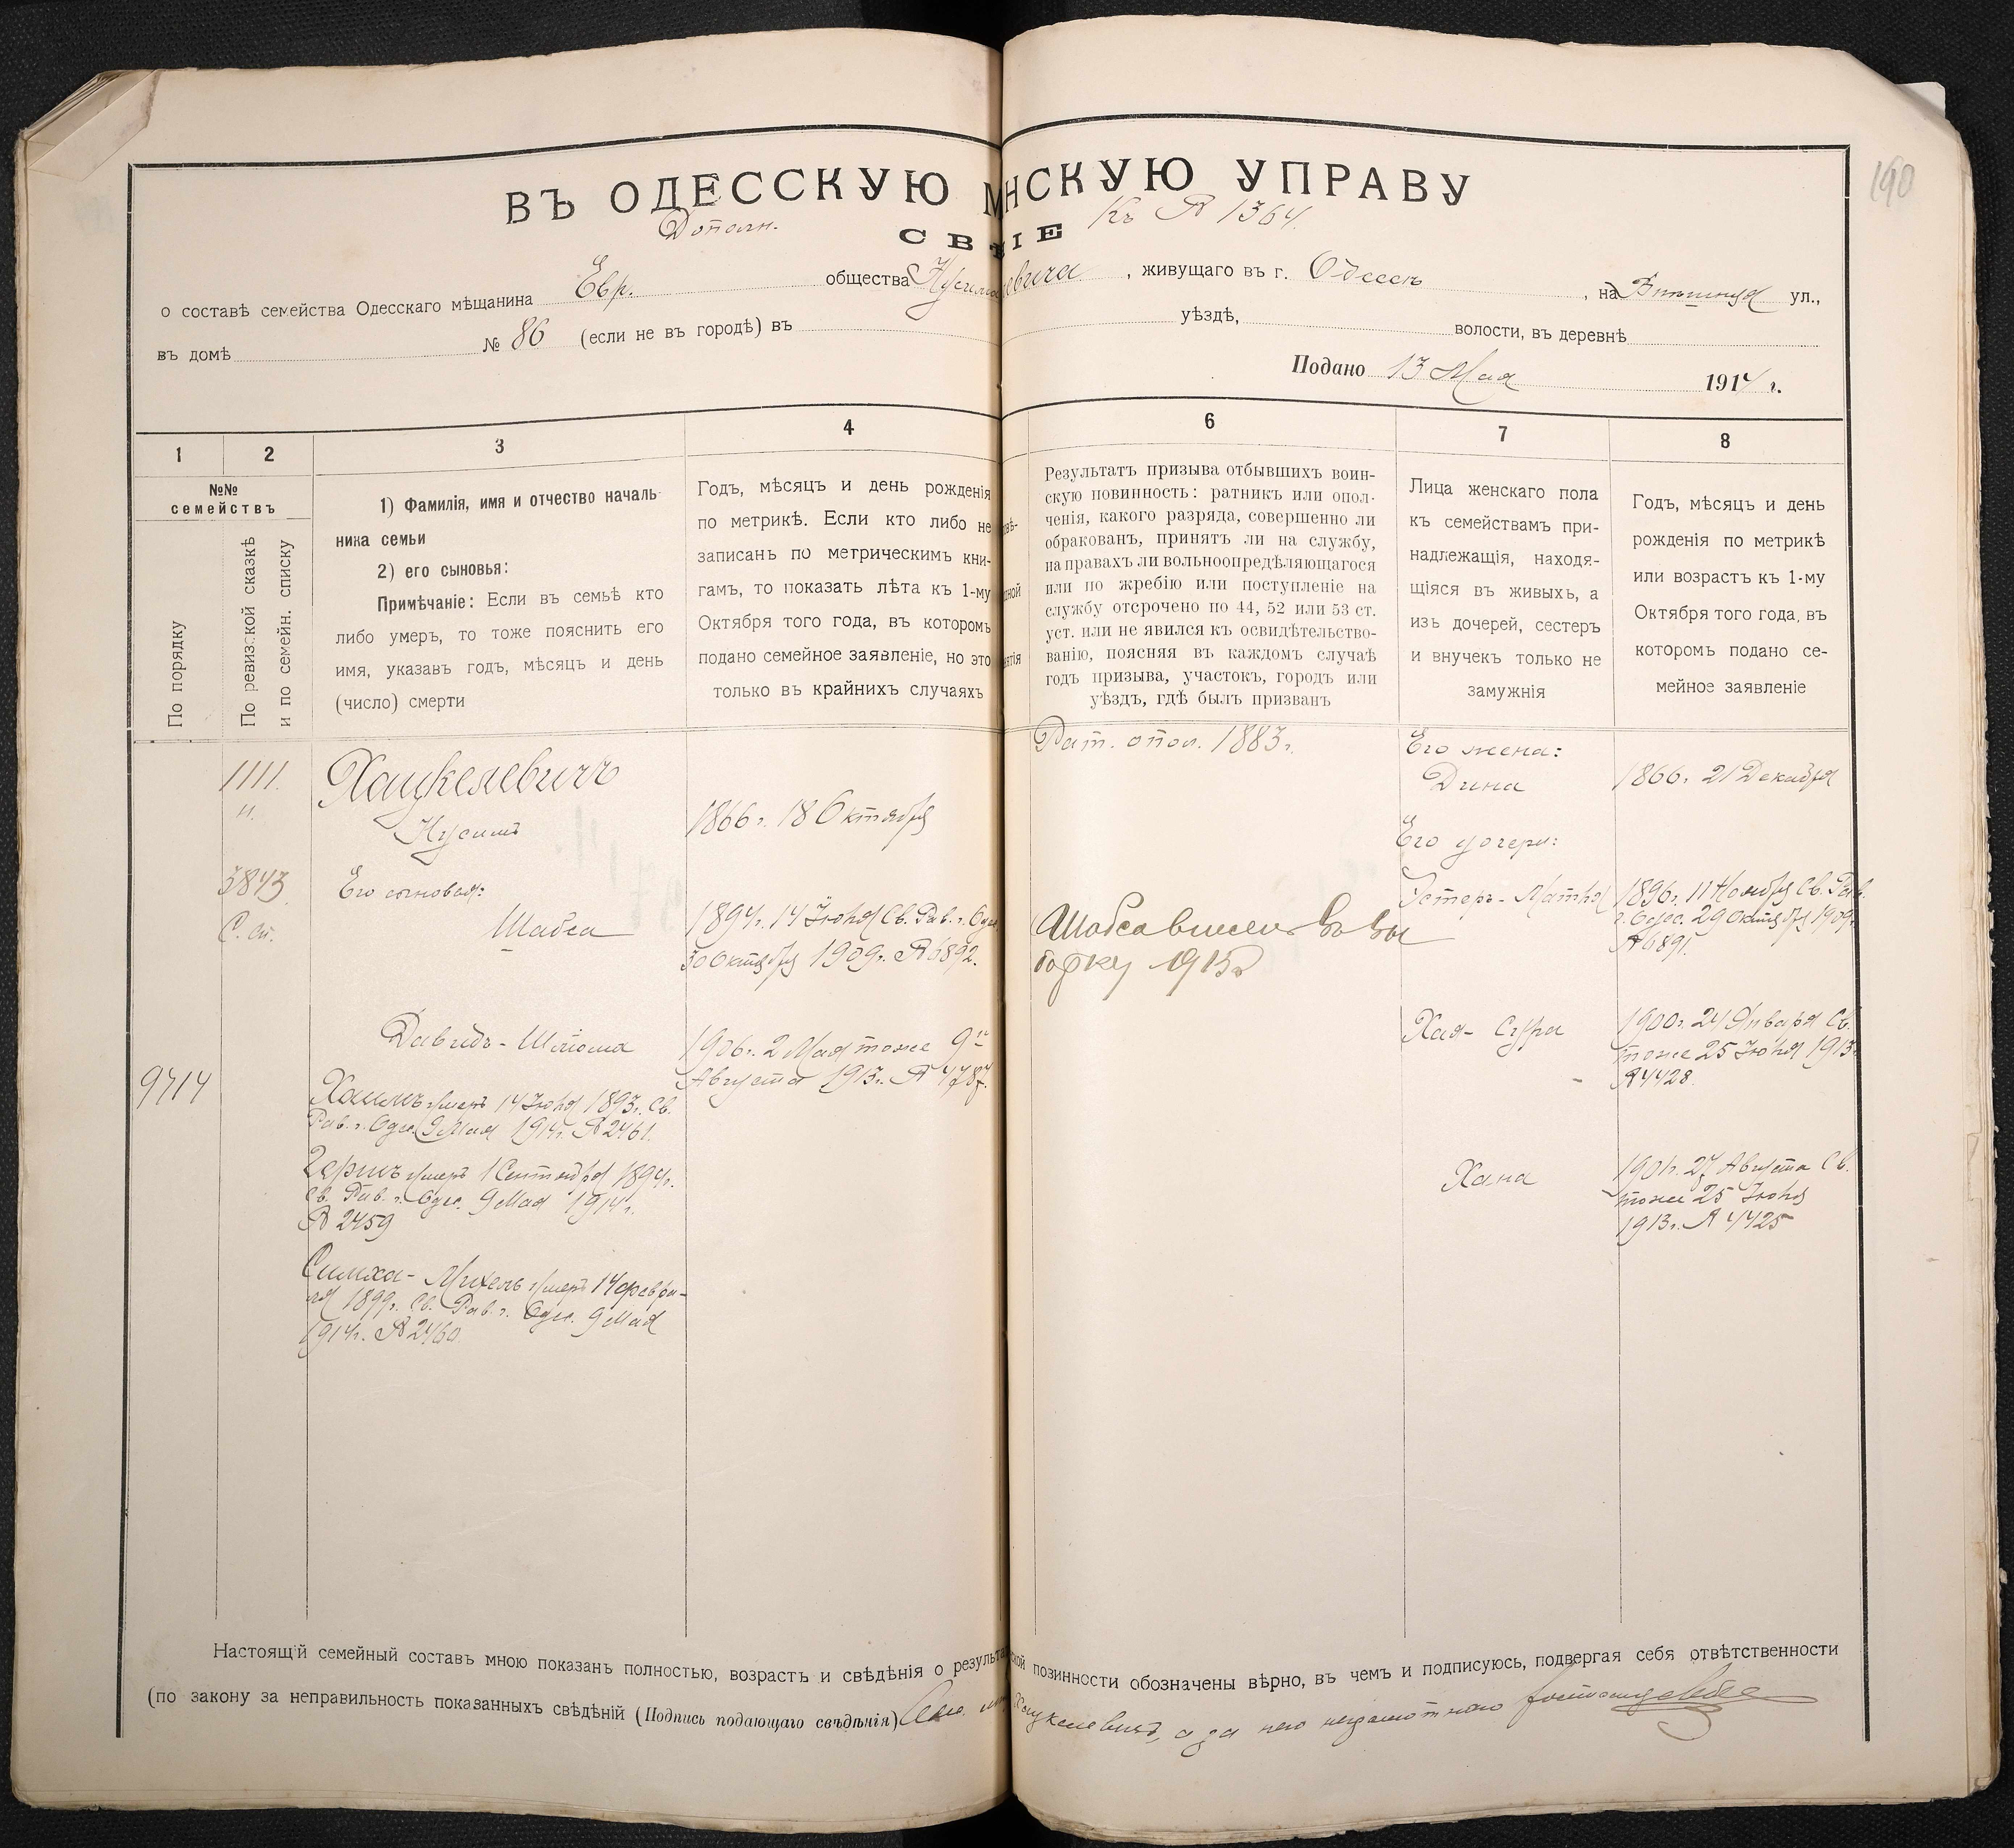 190
ВЪ ОДЕССКУЮ М НСКУЮ УПРАВУ
Дополн.
СВѢ ІЕ
Къ № 1364.
о составѣ семейства Одесскаго мѣщанина Евр. общества Нусима евича, живущаго въ г. Одессѣ, на ул.,
въ домѣ № 86 (если не въ городѣ) въ уѣздѣ, волости, въ деревнѣ
Подано 13 Мая 1914 г.
1 2 3 4 6 7 8
№№
семействъ
По порядку
По ревизской сказкѣ
и по семейн. списку
1) Фамилія, имя и отчество началь-
ника семьи
2) его сыновья:
Примѣчаніе: Если въ семьѣ кто
либо умеръ, то тоже пояснить его
имя, указавъ годъ, мѣсяцъ и день
(число) смерти
Годъ, мѣсяцъ и день рожденія
по метрикѣ. Если кто либо не
записанъ по метрическимъ кни-
гамъ, то показать лѣта къ 1-му
Октября того года, въ которомъ
подано семейное заявленіе, но это
только въ крайнихъ случаяхъ
Результатъ призыва отбывшихъ воин-
скую повинность: ратникъ или опол-
ченія, какого разряда, совершенно ли
обракованъ, принятъ ли на службу,
на правахъ ли вольноопредѣляющагося
или по жребію или поступленіе на
службу отсрочено по 44, 52 или 53 ст.
уст. или не явился къ освидѣтельство-
ванію, поясняя въ каждомъ случаѣ
годъ призыва, участокъ, городъ или
уѣздъ, гдѣ былъ призванъ
Лица женскаго пола
къ семействамъ при-
надлежащія, находя-
щіяся въ живыхъ, а
изъ дочерей, сестеръ
и внучекъ только не
замужнія
Годъ, мѣсяцъ и день
рожденія по метрикѣ
или возрастъ къ 1-му
Октября того года, въ
которомъ подано се-
мейное заявленіе
1111.
н.
3843
С. сп.
9414
Хацкелевичъ
Нусимъ
Его сыновья:
Шабса
Давидъ-Шлiома
Хаимъ умеръ 14 Іюня 1893 г. Св.
Рав. г. Одес. 9 Мая 1914 г. № 2461.
Гершъ умеръ 1 Сентября 1894 г.
Св. Рав. г. Одес. 9 Мая 1914 г.
№ 2459
Симха-Михель умеръ 14 Февра-
ля 1899 г. Св. Рав. г. Одес. 9 Мая
1914 г. № 2460.
1866 г. 18 Октября
1894 г. 14 Іюня Св. Рав. г. Одес.
30 Октября 1909 г. № 6892.
1906 г. 2 Мая тоже 9го
Августа 1913 г. № 4787.
Рат. опол. 1883 г.
Шабса внесен въ вы
борку 1915 г
Его жена:
Дина
Его дочери:
Эстеръ-Матля
Хая-Сура
Хана
1866 г. 21 Декабря
1896 г. 11 Ноября Св. Рав.
г. Одес. 29 Октября 1909 г.
№ 6891.
1900 г. 24 Января Св.
тоже 25 Іюня 1913 г.
№ 4428.
1901 г. 27 Августа Св.
тоже 25 Іюня
1913 г. № 4425
Настоящій семейный составъ мною показанъ полностью, возрастъ и свѣдѣнія о результа ской повинности обозначены вѣрно, въ чемъ и подписуюсь, подвергая себя отвѣтственности
(по закону за неправильность показанныхъ свѣдѣній (Подпись подающаго свѣдѣнія) Хацкелевичъ, а за него неграмотнаго